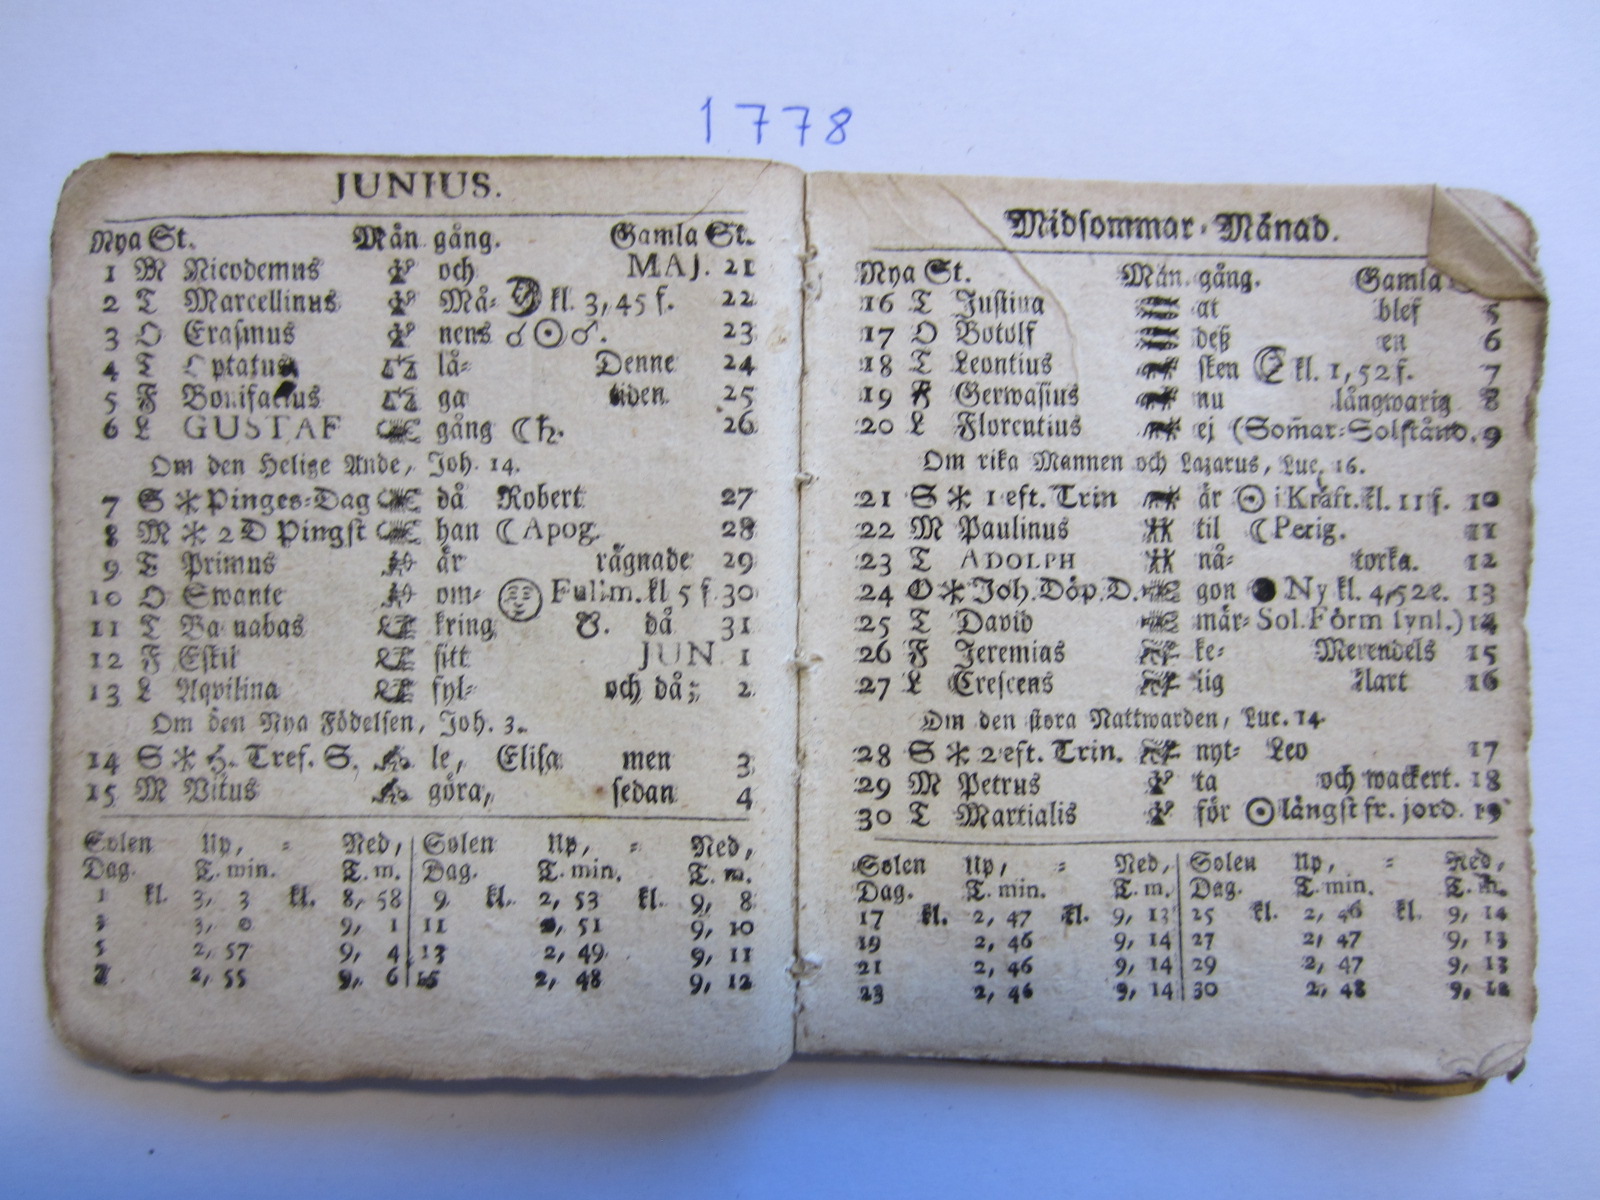 1778
JUNIUS.
Nya St. Mån gång. Gamla St.
1 M Nicodemus och MAJ. 21
2 T Marcellinus Må- kl. 3, 45 f. 22
3 O Erasmus nens ☌ ☉ ♂. 23
4 T Optatus lå- Denne 24
5 F Bonifacius ga tiden 25
6 L GUSTAF gång ☾ ♄. 26
Om den Helige Ande, Joh. 14.
7 S * Pinges-Dag då Robert 27
8 M * 2 D Pingst han ☾ Apog. 28
9 T Primus är rägnade 29
10 O Swante om- Fullm. kl 5 f. 30
11 T Ba nabas kring ☋. då 31
12 F Eskil sitt JUN. 1
13 L Aqvilina syl- och då; 2
Om den Nya Födelsen, Joh. 3.
14 S * H. Tref. S. le, Elisa men 3
15 M Vitus göra, sedan 4
Solen Up, = Ned, Solen Up, = Ned,
Dag. T. min. T. m. Dag. T. min. T. m.
1 kl. 3, 3 kl. 8, 58 9 kl. 2, 53 kl. 9, 8
3 3, 0 9, 1 11 2, 51 9, 10
5 2, 57 9, 4 13 2, 49 9, 11
7 2, 55 9, 6 15 2, 48 9, 12
Midsommar-Månad.
Nya St. Mån gång. Gamla
16 T Justina at blef 5
17 O Botolf deß en 6
18 T Leontius sken kl. 1, 52 f. 7
19 F Gerwasius nu långwarig 8
20 L Florentius ej (Somar-Solstånd. 9
Om rika Mannen och Lazarus, Luc. 16.
21 S * 1 eft. Trin är ☉ i Kräft. kl. 11 f. 10
22 M Paulinus til ☾ Perig. 11
23 T ADOLPH nå- torka. 12
24 O * Joh. Döp. D. gon Ny kl. 4, 52 e. 13
25 T David mär- Sol. Förm synl.) 14
26 F Jeremias ke- Merendels 15
27 L Crescens lig klart 16
Om den stora Nattwarden, Luc. 14.
28 S * 2 eft. Trin. nyt- Leo 17
29 M Petrus ta och wackert. 18
30 T Martialis för ☉ längst fr. jord. 19
Solen Up, = Ned, Solen Up, = Ned,
Dag. T. min. T. m. Dag. T. min. T. m.
17 kl. 2, 47 kl. 9, 13 25 kl. 2, 46 kl. 9, 14
19 2, 46 9, 14 27 2, 47 9, 13
21 2, 46 9, 14 29 2, 47 9, 13
23 2, 46 9, 14 30 2, 48 9, 12